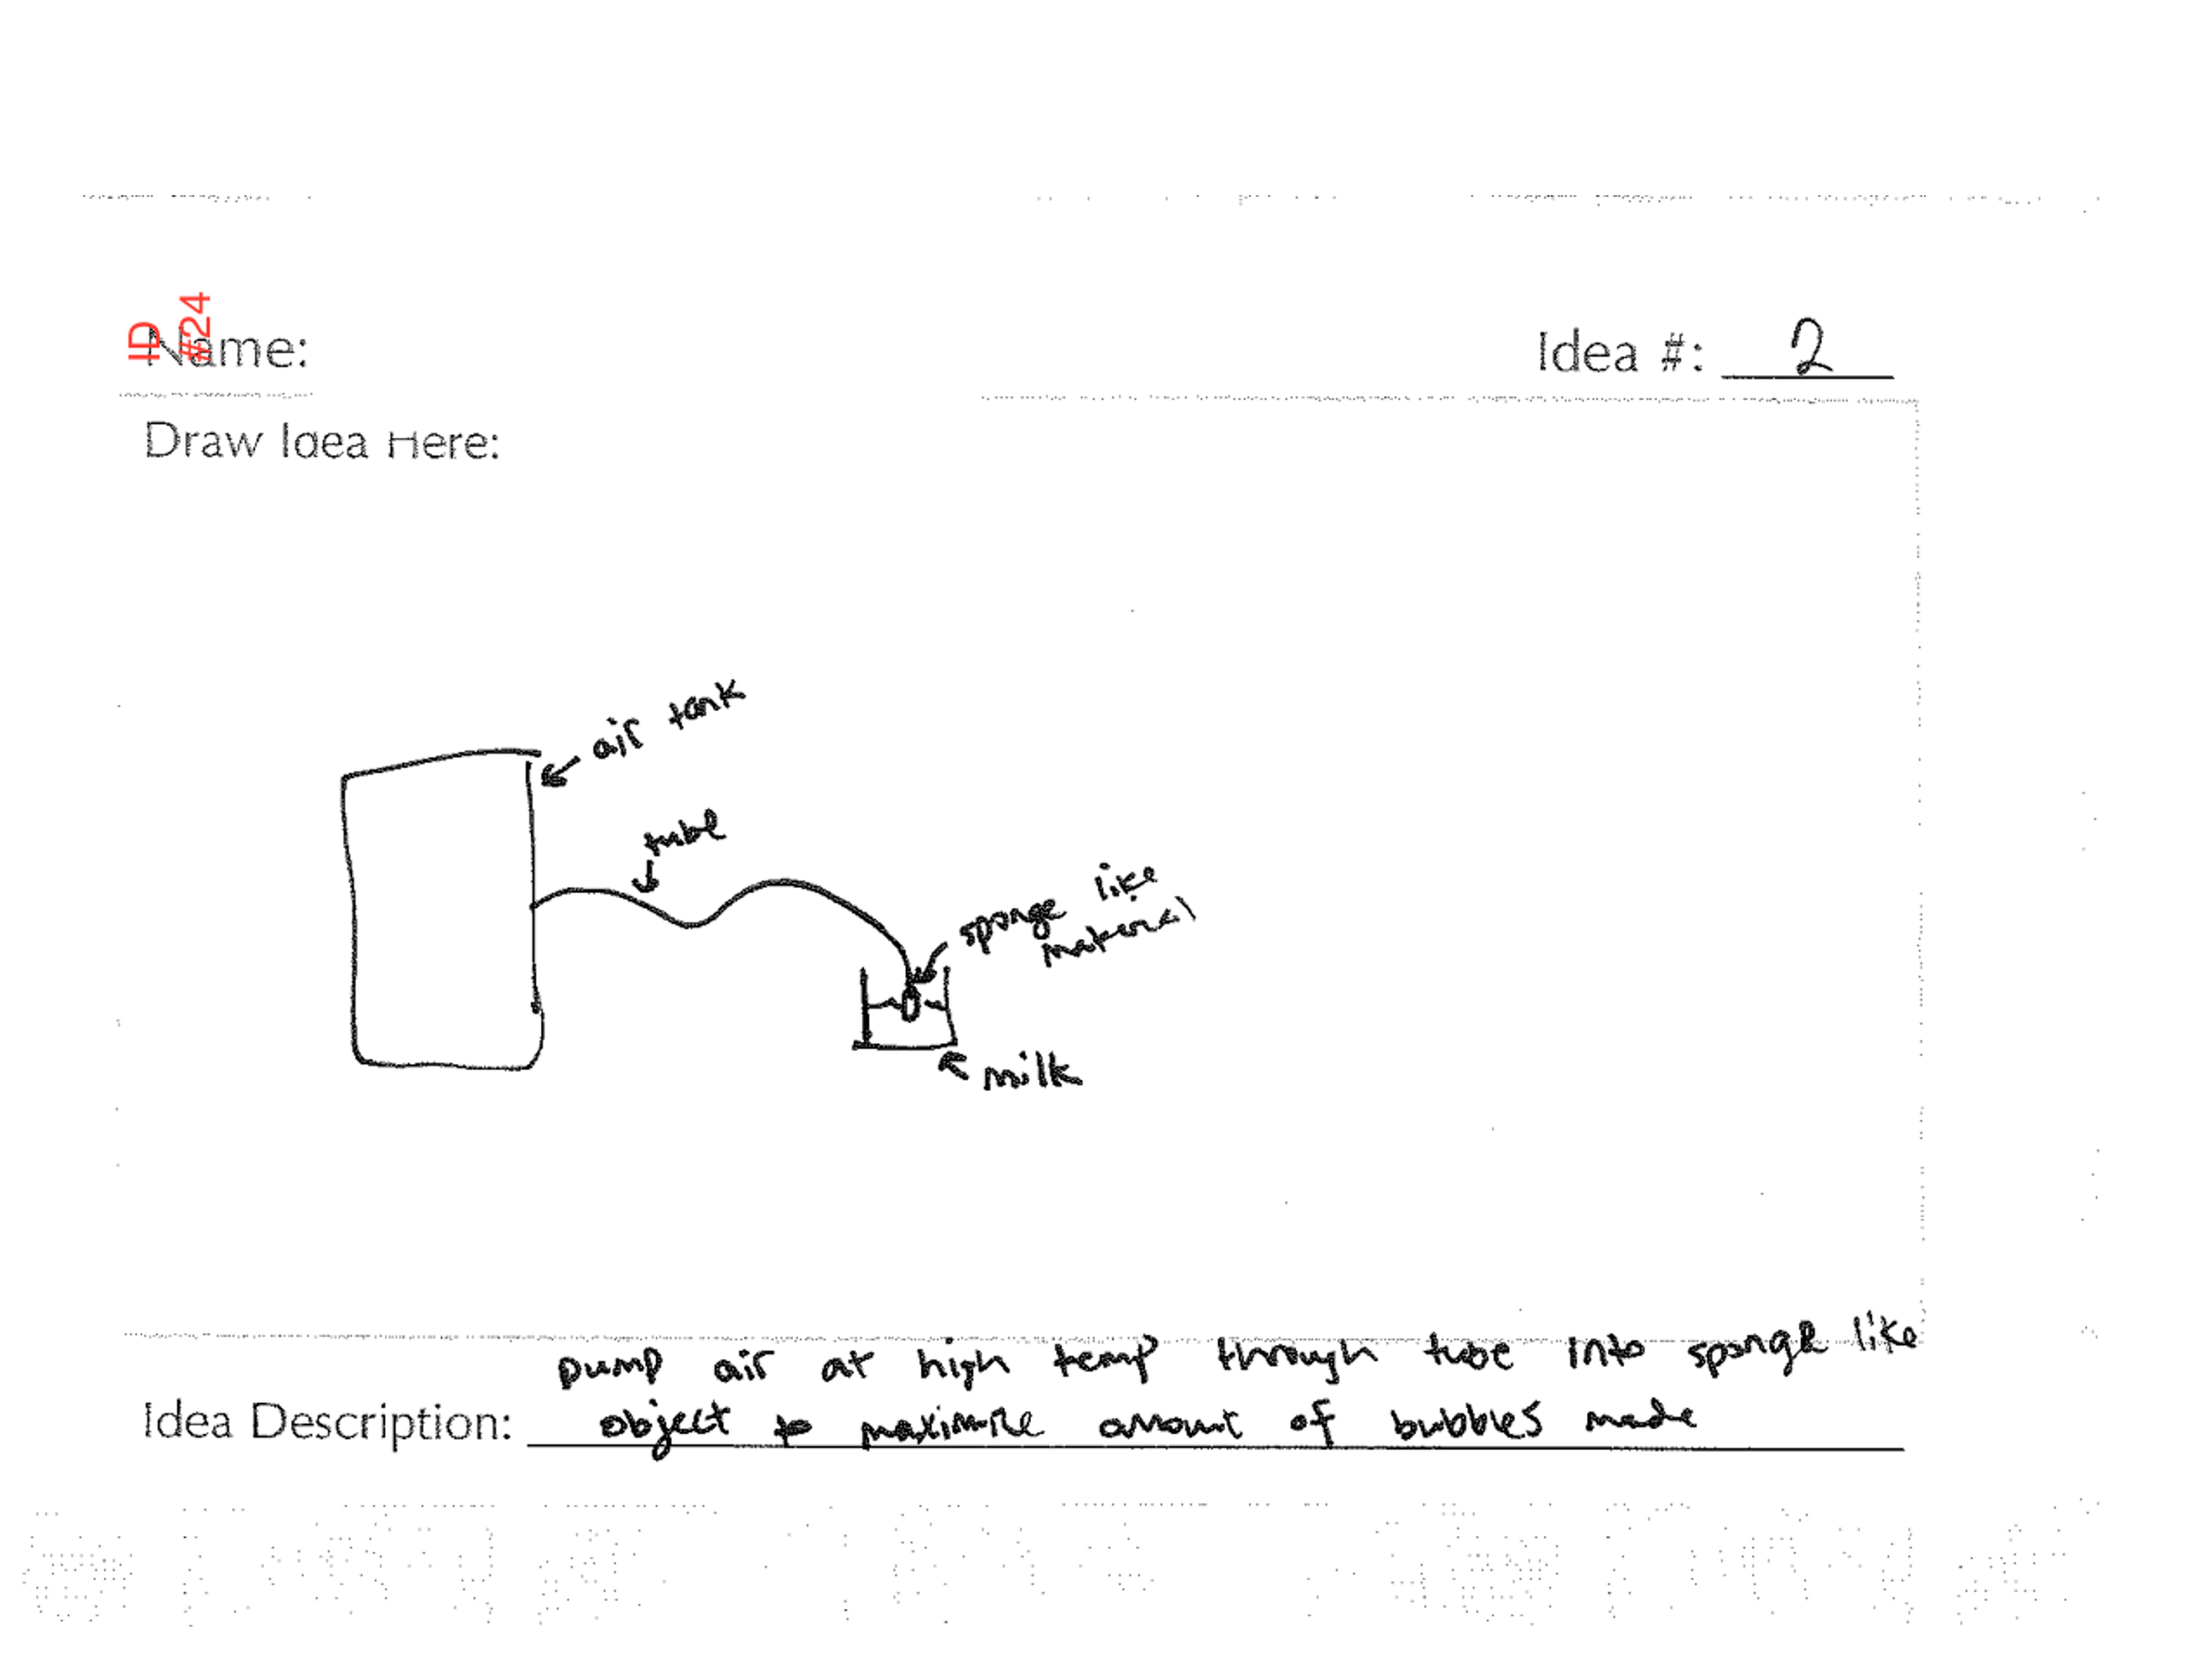 ID
#24
Name:
Idea #: 2
Draw Idea Here:
air tank
tube
sponge like
material
milk
pump air at high temp through tube into sponge like
Idea Description: object to maximize amount of bubbles made